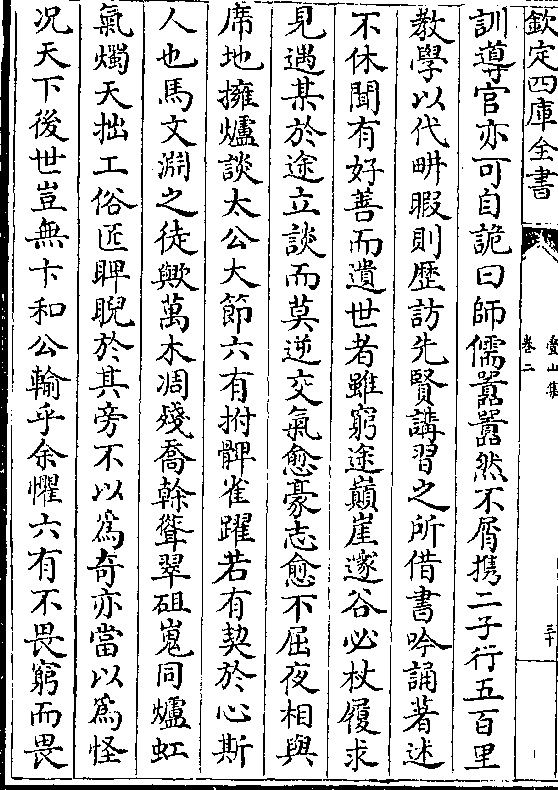 欽定四庫全書
疊山集
卷二
三十
訓導官亦可自詭曰師儒嚚嚚然不屑携二子行五百里
教學以代畊暇則歴訪先賢講習之所借書吟誦著述
不休聞有好善而遺世者雖窮途巔崖邃谷必杖履求
見遇某於途立談而莫逆交氣愈豪志愈不屈夜相與
席地擁爐談太公大節六有拊髀雀躍若有契於心斯
人也馬文淵之徒歟萬木凋殘喬幹聳翠砠嵬同爐虹
氣燭天拙工俗匠睥睨於其旁不以為奇亦當以為怪
况天下後世豈無卞和公輸乎余懼六有不畏窮而畏